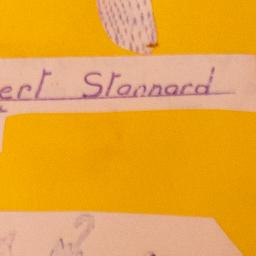 ert Stannard